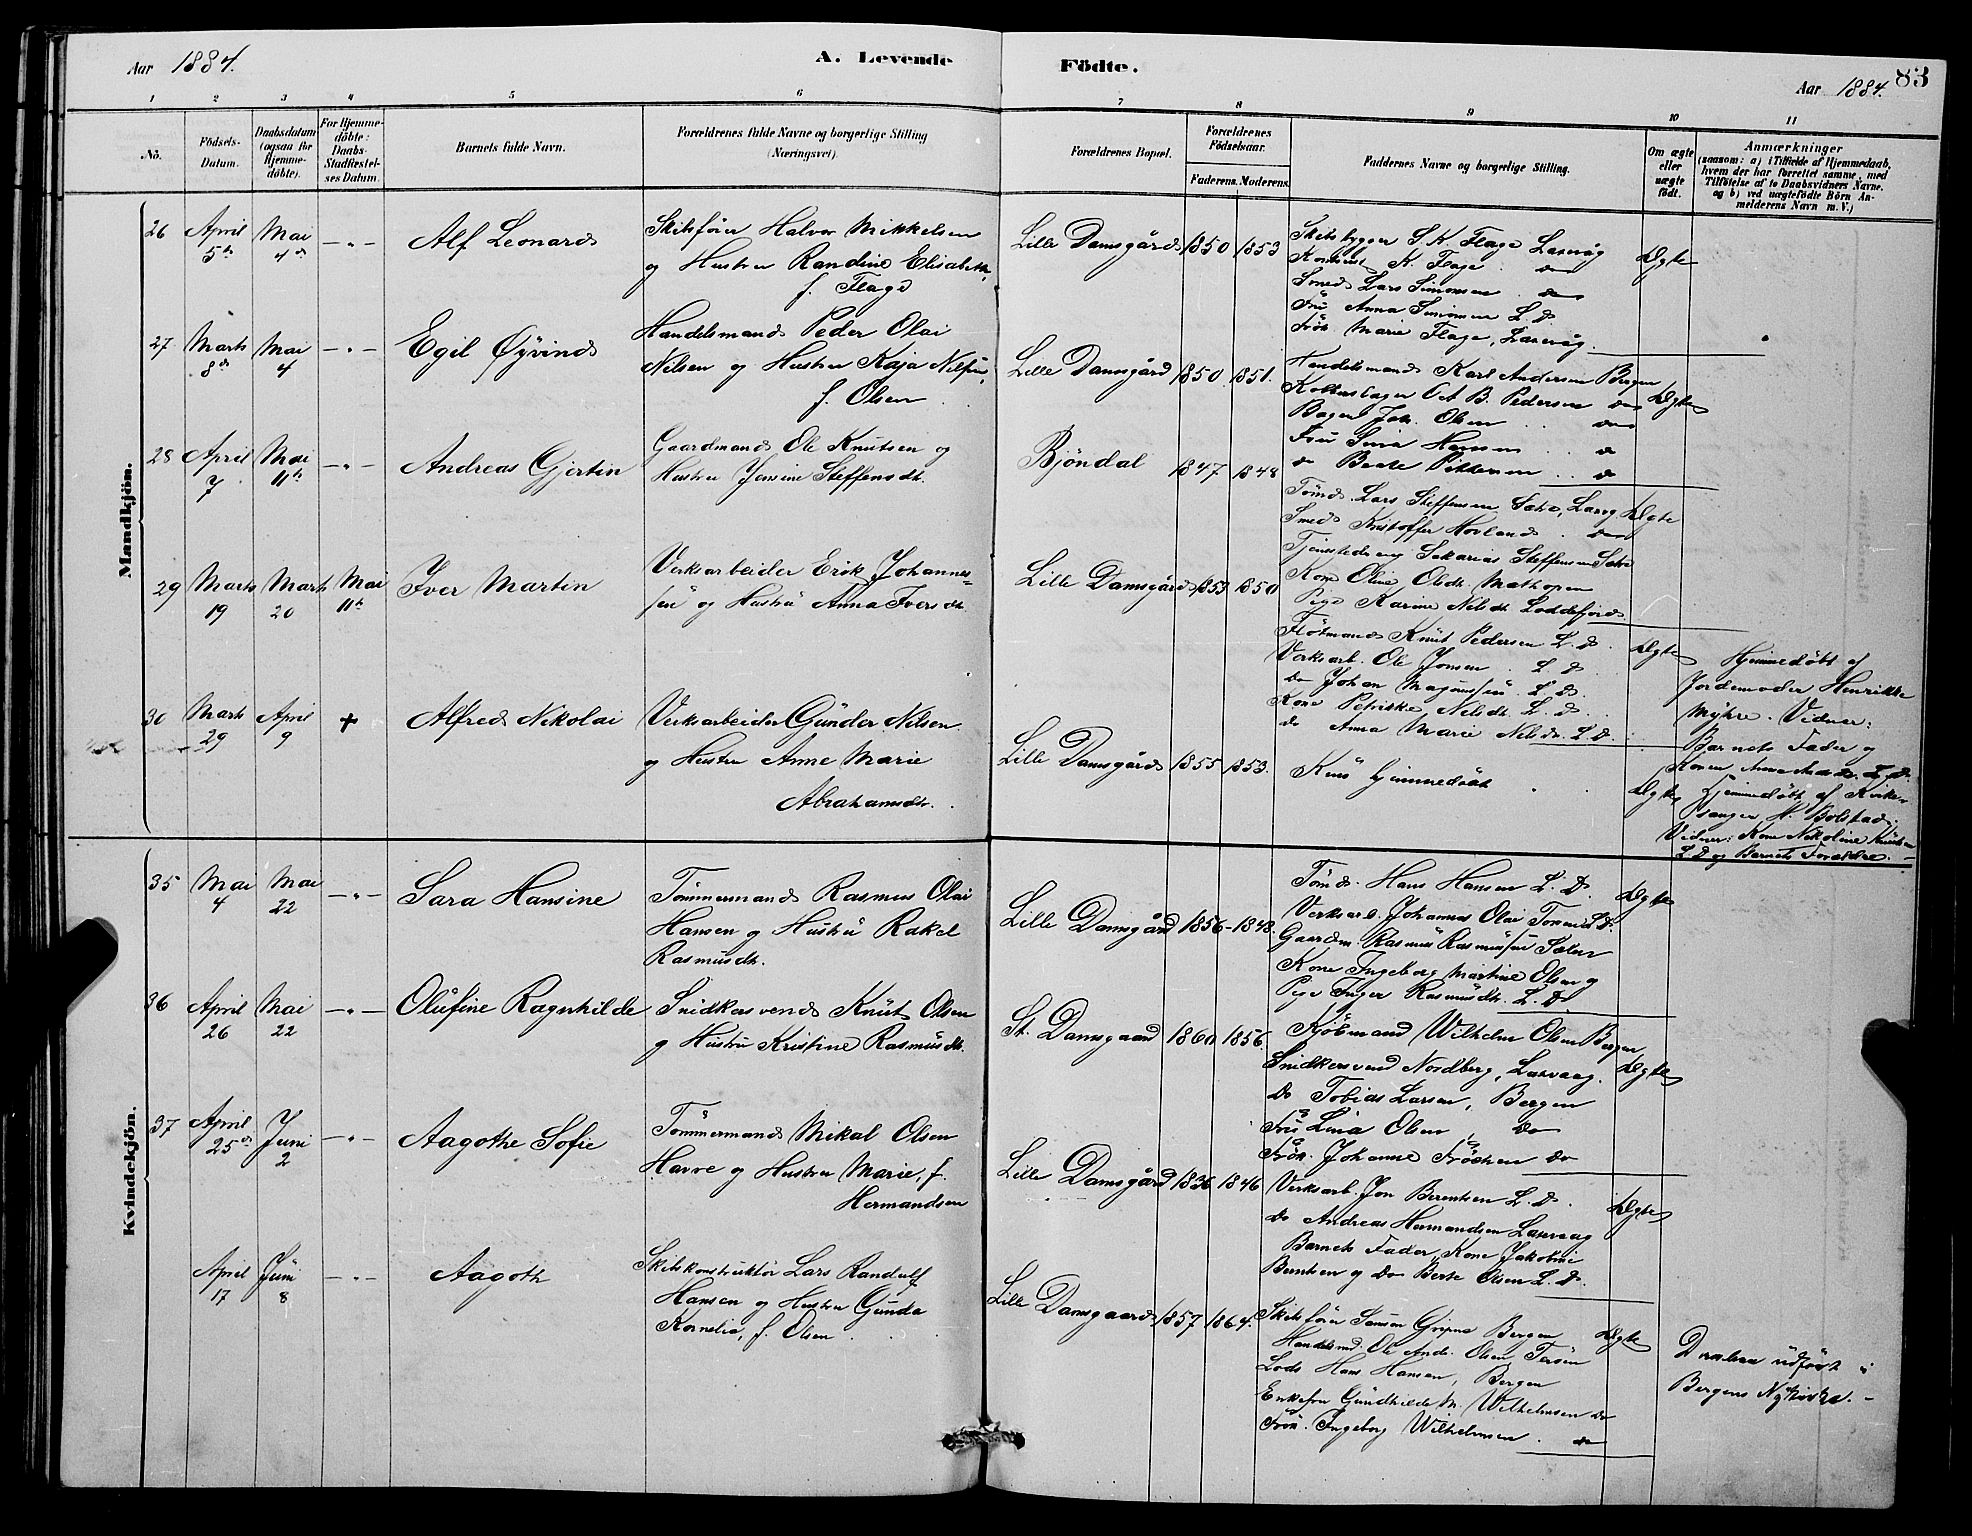 Aar 1884.
A. Levende
Födte.
Aar 1884.
83
1 2 3 4 5 6 7 8 9 10 11
No.
Födsels-
Datum.
Daabsdatum
(ogsaa for
Hjemme-
döbte).
For Hjemme-
döbte:
Daabs-
Stadfæstel-
ses Datum.
Barnets fulde Navn.
Forældrenes fulde Navne og borgerlige Stilling
(Næringsvei).
Forældrenes Bopæl.
Forældrenes
Födselsaar.
Faderens. Moderens.
Faddernes Navne og borgerlige Stilling.
Om ægte
eller
uægte
födt.
Anmærkninger
(saasom: a) i Tilfælde af Hjemmedaab,
hvem der har forrettet samme, med
Tilföielse af to Daabsvidners Navne.
og b) ved uægtefödte Börn An-
melderens Navn m. V.)
Mandkjön.
26 April 5te Mai 4de -"- Alf Leonard
Skibsfører Halvor Mikkelsen
og Hustru Randine Elisabeth,
f. Flage
Lille Damsgård 1850 1853
Skibsbygger S. K. Flage Laxevåg
K. Flage do
Smed Lars Simonsen do
Fru Anna Simonsen L. D.
Frøk. Marie Flage, Laxevåg.
Ægte
27 Marts 8de Mai 4 -"- Egil Øyvind
Handelsmand Peder Olai
Nilsen og Hustru Kaja Nilsen,
f. Olsen
Lille Damsgård 1850. 1851.
Handelsmand Karl Andersen Bergen
B. Pedersen do
Bager Joh. Olsen do
Fru Hansen do
do Beate Pettersen do
Ægte
28 April 7 Mai 11te -"- Andreas Gjertin
Gaardmand Ole Knutsen og
Hustru Jensine Steffensdt.
Bjöndal 1847. 1848
Tømd. Lars Steffensen
Smed Kristoffer Hovland do
Tjenestedreng Sakarias Steffensen
Kone Oline Olsdt. Mathopen
Pige Karine Nilsdt. Loddefjord
Ægte
29 Marts 19 Marts 20 Mai 11te Iver Martin
Verksarbeider Erik Johannes-
sen og Hustru Anna Iversdt.
Lille Damsgård 1853 1850
Knut Pedersen L. D.
Verksarb. Ole Jonsen L. D.
do Johan Magnussen L. D.
Kone Petriske Nilsdt. L. D.
do Anna Marie Nilsdt. L. D.
Ægte
Hjemmedøbt af
Jordemoder Henrikke
Myhre. Vidner:
Barnets Fader og
Konen L. D.
30 Marts 29 April 9 + Alfred Nikolai
Verksarbeider Günder Nilsen
og Hustru Anne Marie
Abrahamsdt.
Lille Damsgård 1855 1853.
Kun hjemmedøbt
Ægte
Hjemmedøbt af Kirke-
sanger H. Bolstad.
Vidner: Kone Nikoline
L. D og Barnets Forældre.
Kvindekjön.
35 Mai 4 Mai 22 -"- Sara Hansine
Tömmermand Rasmus Olai
Hansen og Hustru Rakel
Rasmusdt.
Lille Damsgård 1856 - 1848.
Tømd. Hans Hansen L. D.
Verksarb. Johannes Olai L. D.
Gaardm. Rasmus Rasmussen
Kone Ingeborg Martine Olsen og
Pige Inger Rasmusdt. L. D.
Ægte
36 April 26 Mai 22 -"- Olufine Ragnhilde
Snidkersvend Knut Olsen
og Hustru Kristine Rasmusdt.
St. Damsgaard 1860 1856.
Kjøbmand Wilhelm Olsen Bergen
Snidkersvend Nordberg, Laxevaag.
do Tobias Larsen, Bergen
Fru Lina Olsen, do
Frøk. Johanne do
Ægte
37 April 25de Juni 2 -"- Aagothe Sofie
Tömmermand Mikal Olsen
Havre og Hustru Marie, f.
Hermandsen
Lille Damsgård 1836 1846
Verksarb. Jon Berentsen L. D.
do Andreas Hermandsen Laxevaag
Barnets Fader, Kone Jakobine
Berntsen og do Berte Olsen L. D.
Ægte
April 17 Juni 8 -"- Aagoth
Skibskonstruktör Lars Randulf
Hansen og Hustru Gunda
Kornelia, f. Olsen
Lille Damsgaard 1857 1864.
Skibsfører Bergen
Handelsmd. Ole Andr. Olsen,
Lods Hans Hansen, Bergen
Enkefru Gundhilde M. Wilhelmsen do
Frøk. Ingeborg Wilhelmsen do
Ægte
Daaben udført i
Bergens Nykirke.